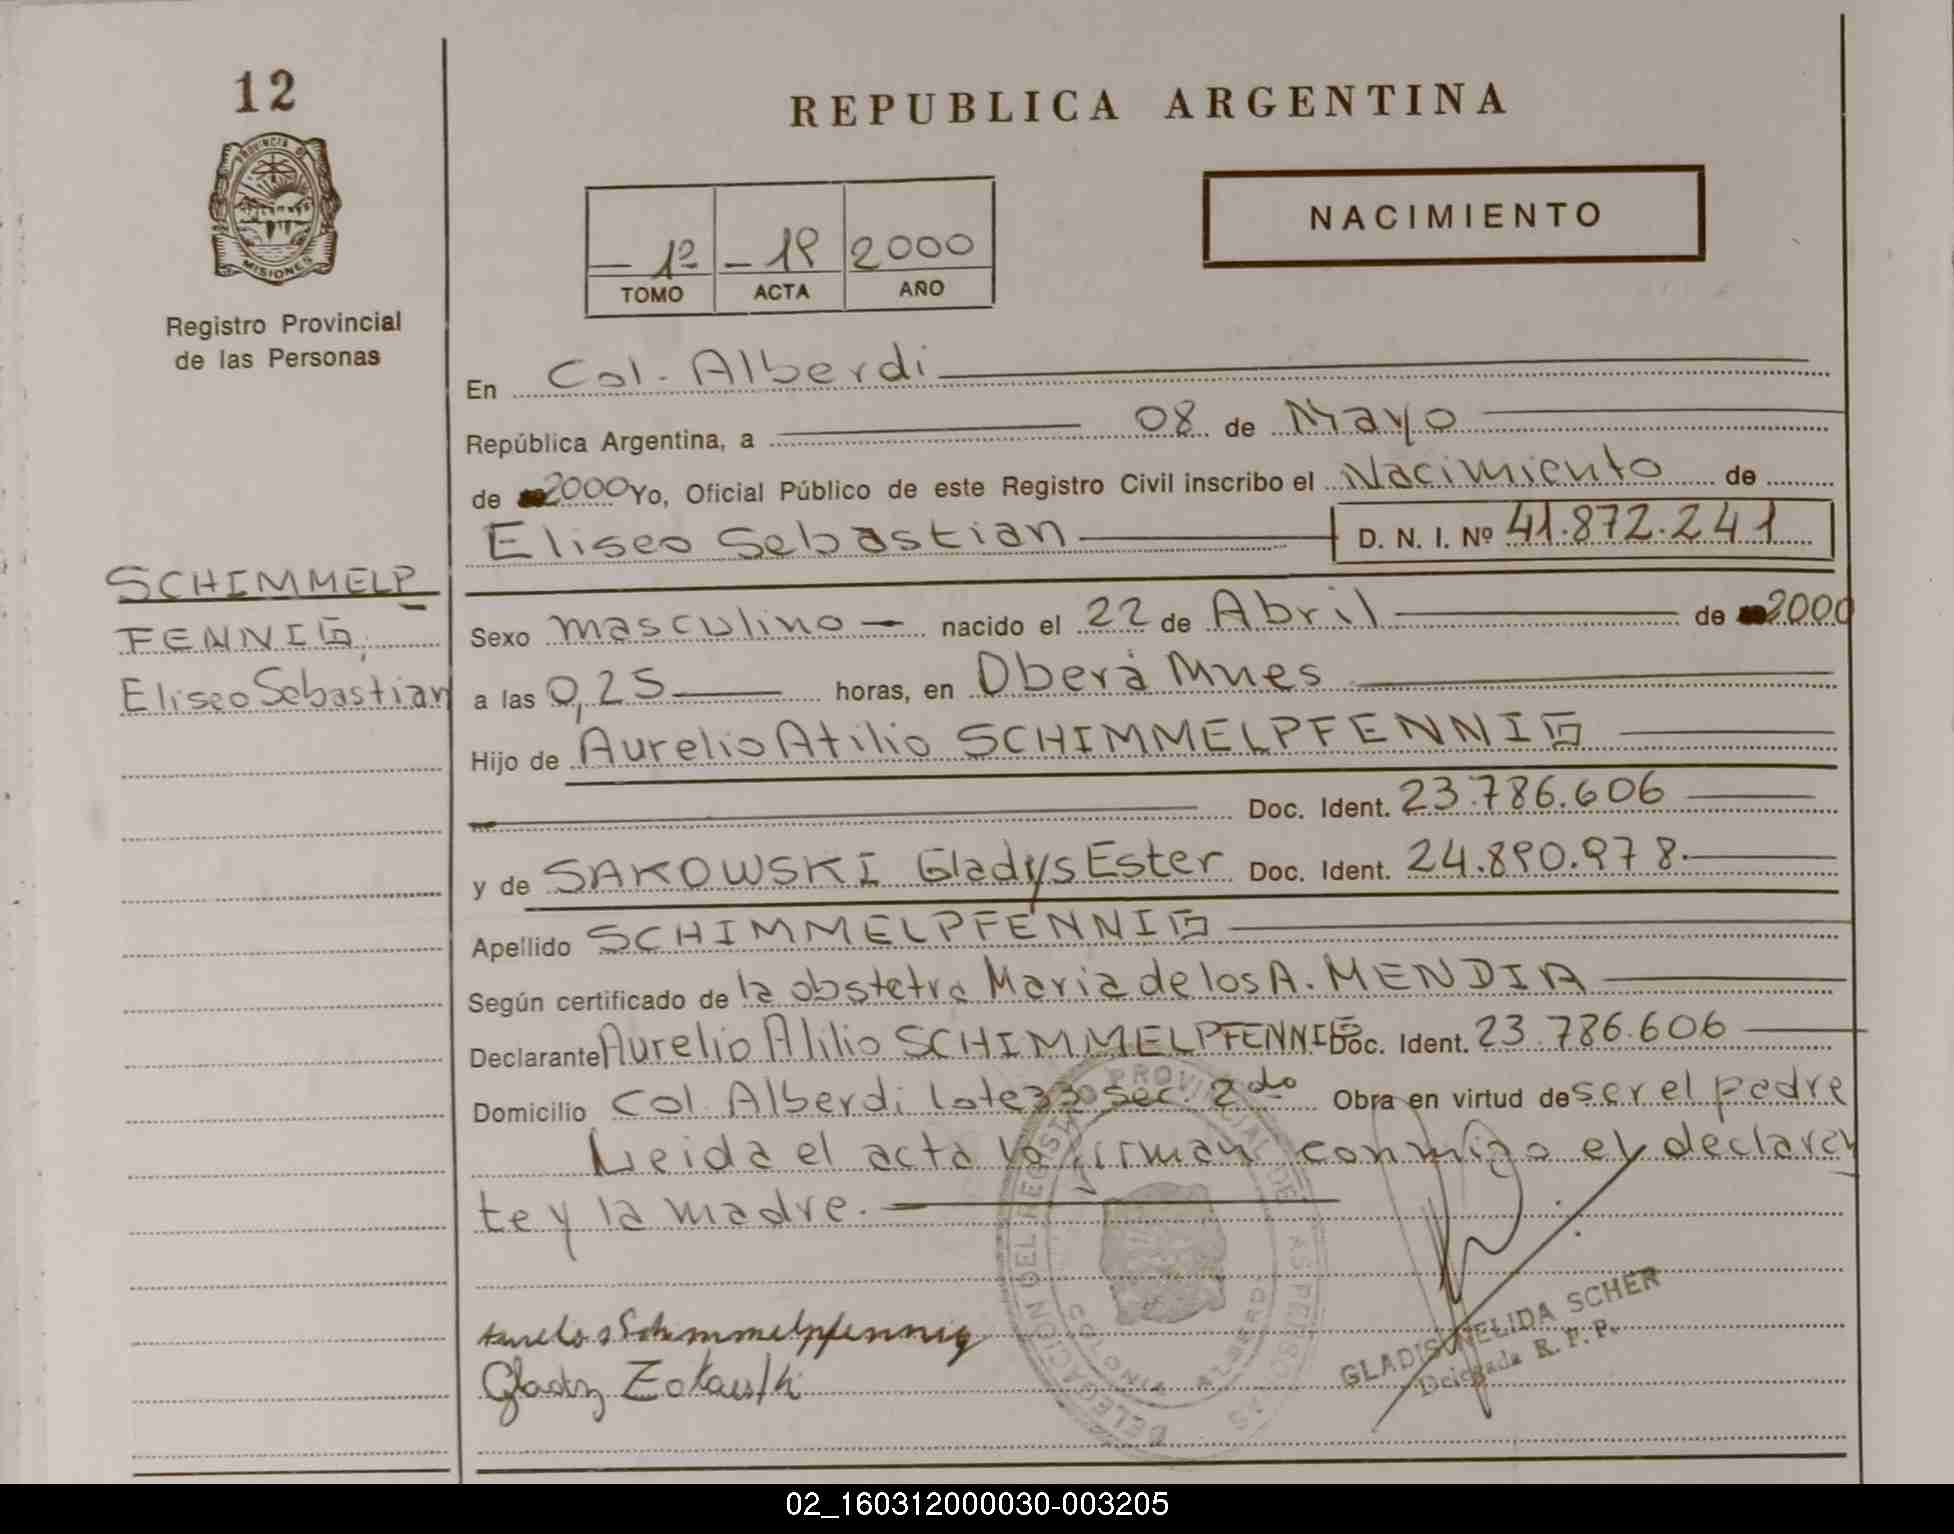 12
PROVINCIA DE
MISIONES
Registro Provincial
de las Personas
REPUBLICA ARGENTINA
NACIMIENTO
1º 19 2000
TOMO ACTA AÑO
En Col. Alberdi
República Argentina, a 08 de Mayo
de 2000 Yo, Oficial Público de este Registro Civil inscribo el Nacimiento de
Eliseo Sebastian D. N. I. Nº 41.872.241
SCHIMMELP
FENNIG,
Eliseo Sebastian
Sexo masculino nacido el 22 de Abril de 2000
a las 0,25 horas, en Oberá Mnes
Hijo de Aurelio Atilio SCHIMMELPFENNIG
Doc. Ident. 23.786.606
y de SAKOWSKI Gladys Ester Doc. Ident. 24.890.978.
Apellido SCHIMMELPFENNIG
Según certificado de la obstetra Maria de los A. MENDIA
Declarante Aurelio Atilio SCHIMMELPFENNIG Doc. Ident. 23.786.606
Domicilio Col. Alberdi Lote 330 sec. 2do Obra en virtud de ser el padre
Leida el acta la firman conmigo el declaran
te y la madre.
DELEGACION DEL REGISTRO PROVINCIAL DE LAS PERSONAS
COLONIA ALBERDI
Schimmelpfennig
GLADIS NELIDA SCHER
Delegada R. P. P.
02_160312000030-003205